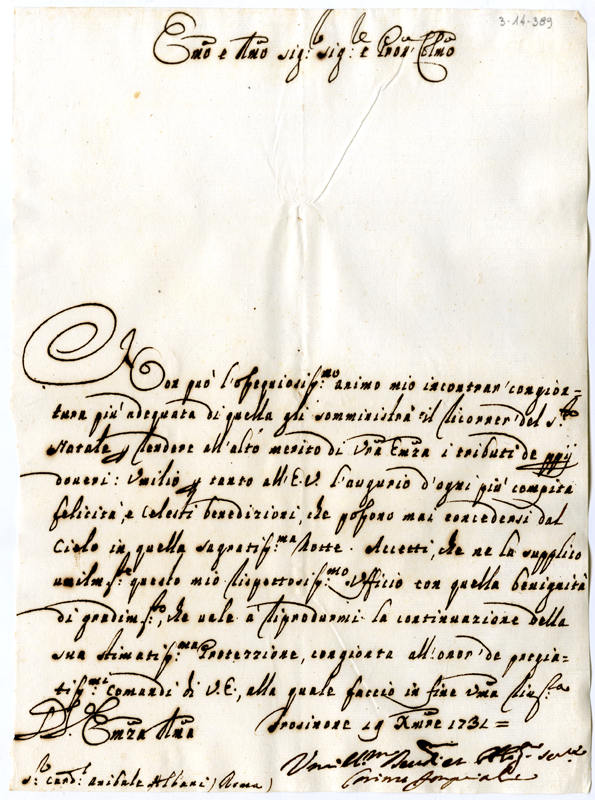 3-14-389
Emo e Rmo sig.r sig.r e Pron Colmo
Non può l'ossequiosiss.mo animo mio incontrar congion=
tura più adequata di quella gli somministra il ricorrer del s.to
Natale p rendere all'alto merito di Vra Emza i tributi de ppij
doveri: Umilio p tanto all'E.V. l'augurio d'ogni più compita
felicità, e Celesti benedizioni, che possono mai concedersi dal
Cielo in quella sagratiss.ma Notte. Accetti, che ne la supplico
umilm.te questo mio rispettosiss.mo Ufficio con quella benignità
di gradim.to, che vale à riprodurmi la continuazione della
sua stimatiss.ma Protezzione, congionta all'onor de pregia=
tiss.mi comandi di V.E., alla quale faccio in fine uma riu.za
D. V. Emza Rma Frosinone 19 Xmbre 1731 =
S.r Card.l Anibale Albani (Roma)
Umill.mo